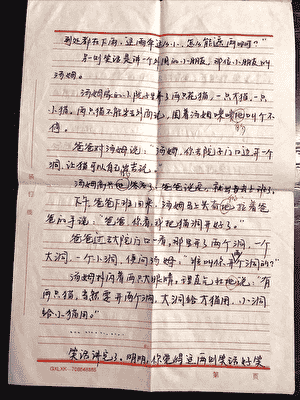 到处都在下雨,这两伞这么小,怎么能遮雨呀?"
另一则笑话是讲一个外国的小朋友,那位小朋友叫
汤姆。
汤姆家的小院子里养了两只花猫,一只大猫,一只
小猫。两只猫不能出去玩,围着汤姆喵喵地叫个不
停。
爸爸对汤姆说:"汤姆,你去院子门口边开一个
洞,让猫可以自己出去玩。
汤姆高兴地答应了。爸爸说完,就到班上去了。
下午,爸爸下班回来,汤姆马上上前拉着爸
爸的手说:"爸爸,你看,我把猫洞开好了。"
爸爸过去大院门口一看,那里开了两个洞,一个
大洞,一个小洞,便问汤姆:"谁叫你开两个洞的?"
汤姆扑闪着两只大眼睛,理直气壮地说:"有
两只猫,当然要开两个洞,大洞给大猫用,小洞
给小猫用。"
…………
笑话讲完了,明明,你觉得这两则笑话好笑
第 页